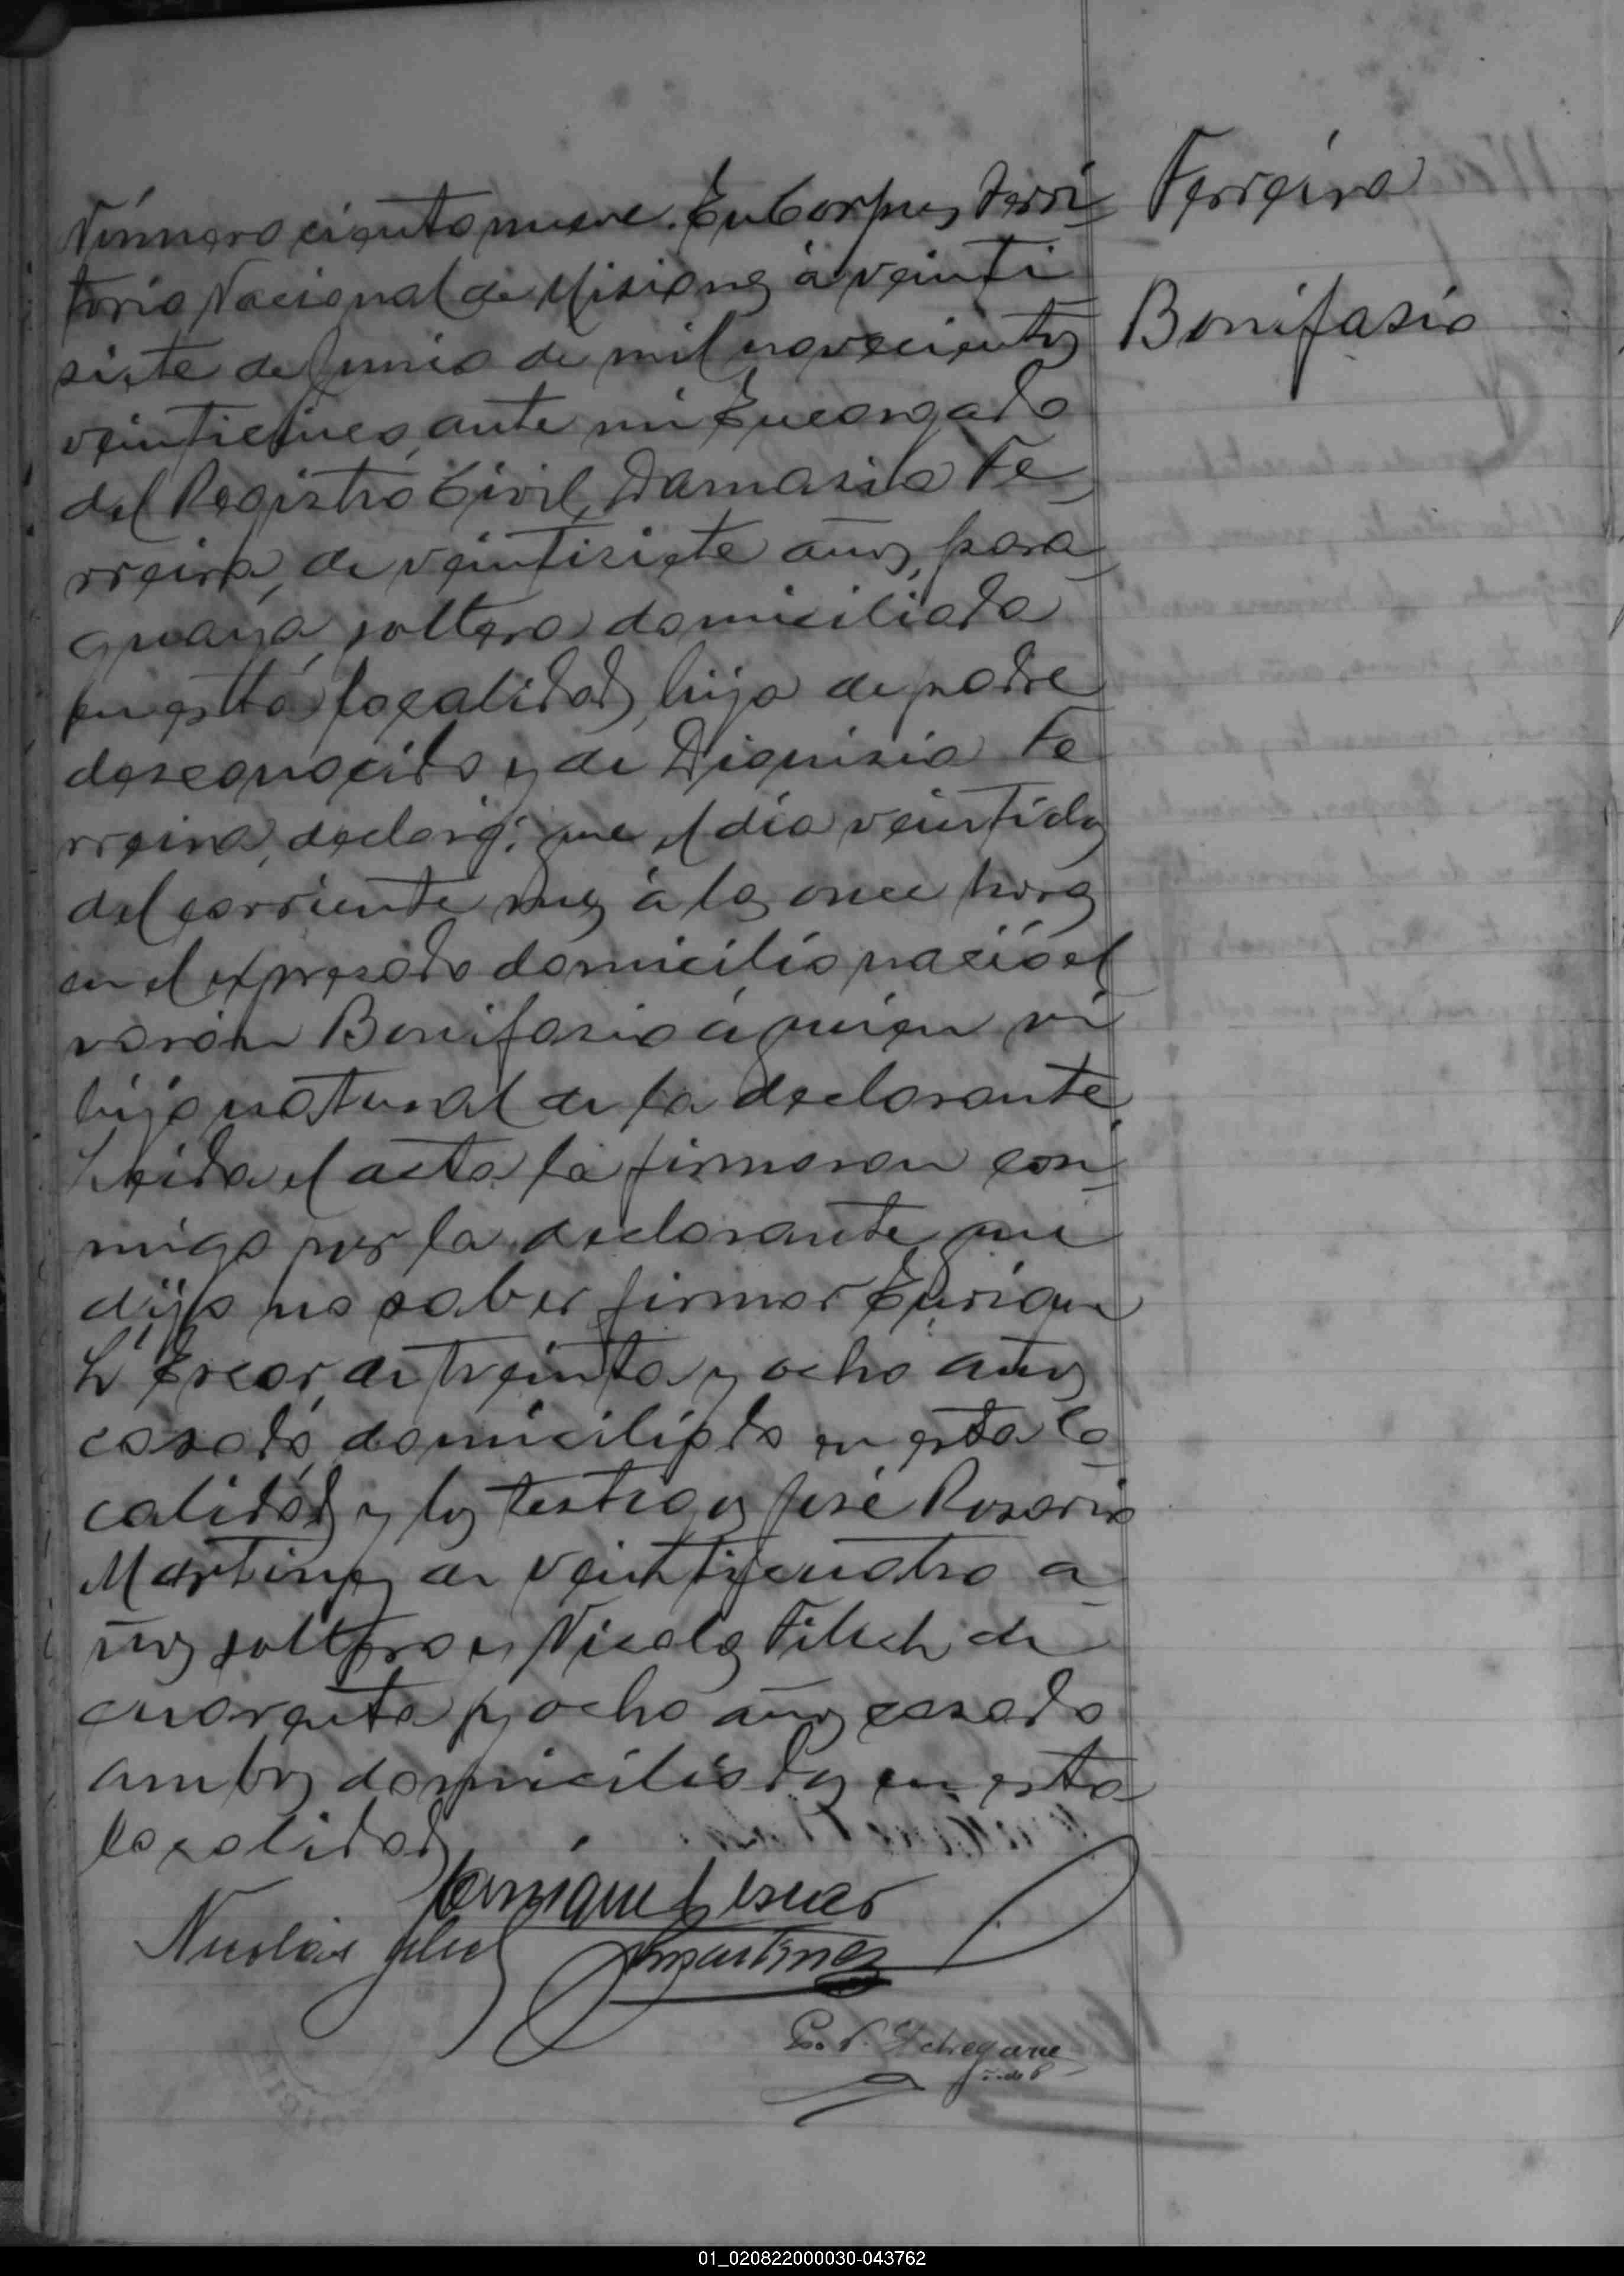 Ferreira
Bonifasio
Número ciento nueve. En Corpus, Terri-
torio Nacional de Misiones, à veinti
siete de Junio de mil novecientos
veinticinco, ante mi Encargado
del Registro Civil, Damasia Fe-
rreira, de veintisiete años, para-
guaya, soltera domiciliada
en esta localidad, hija de padre
desconocido y de Dionisia Fe-
rreira, declaró: que el dia veintidos
del corriente mes à las once horas
en el expresado domicilio nació el
varón Bonifasio à quien vi
hijo natural de la declarante
Leida el acta la firmaron con-
migo por la declarante que
dijo no saber firmar Enrique
L' de treinta y ocho años
casado, domiciliado en esta lo-
calidad y los testigos José Rosario
Martinez de veinticuatro a-
ños soltero y Nicolas de
cuarenta y ocho años casado
ambos domiciliados en esta
localidad
Enrique
Nicolás
Martinez
01_020822000030-043762